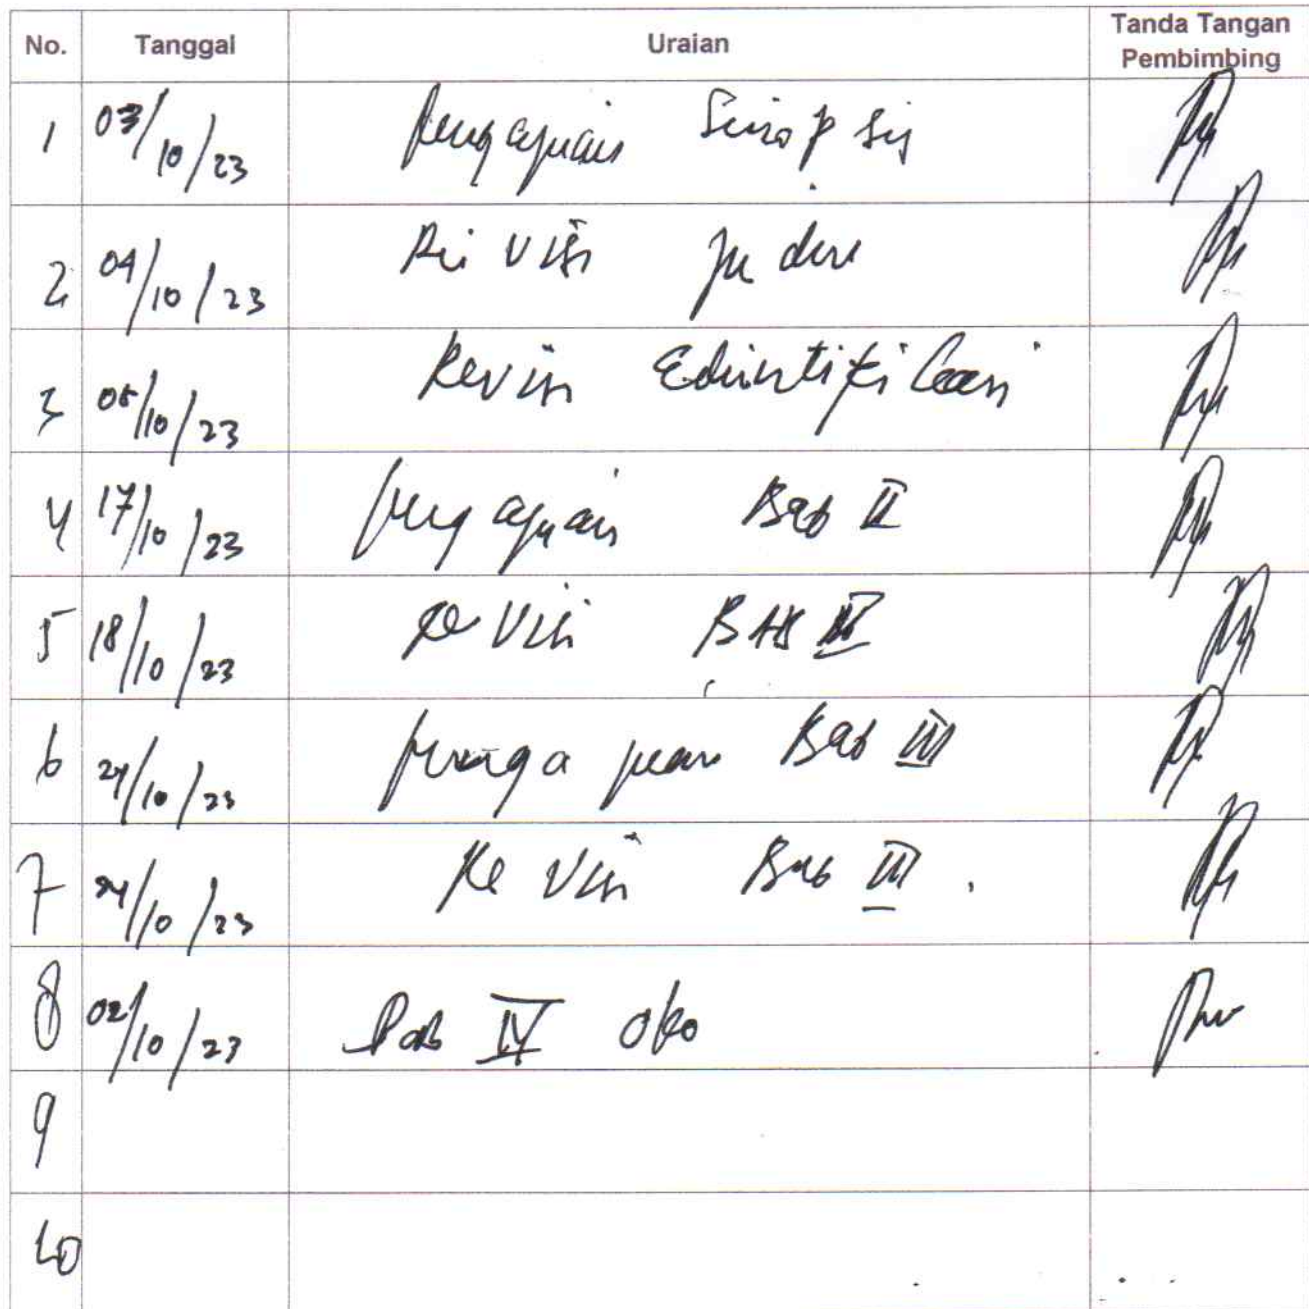 No. Tanggal Uraian Tanda Tangan Pembimbing
1 03/10/23 Pengajuan Sinopsis
2 04/10/23 Revisi Judul
3 05/10/23 Revisi Edintifikasi
4 17/10/23 Pengajuan Bab II
5 18/10/23 Revisi BAB II
6 24/10/23 Pengajuan Bab III
7 24/10/23 Revisi Bab III.
8 02/10/23 Bab IV
9
10